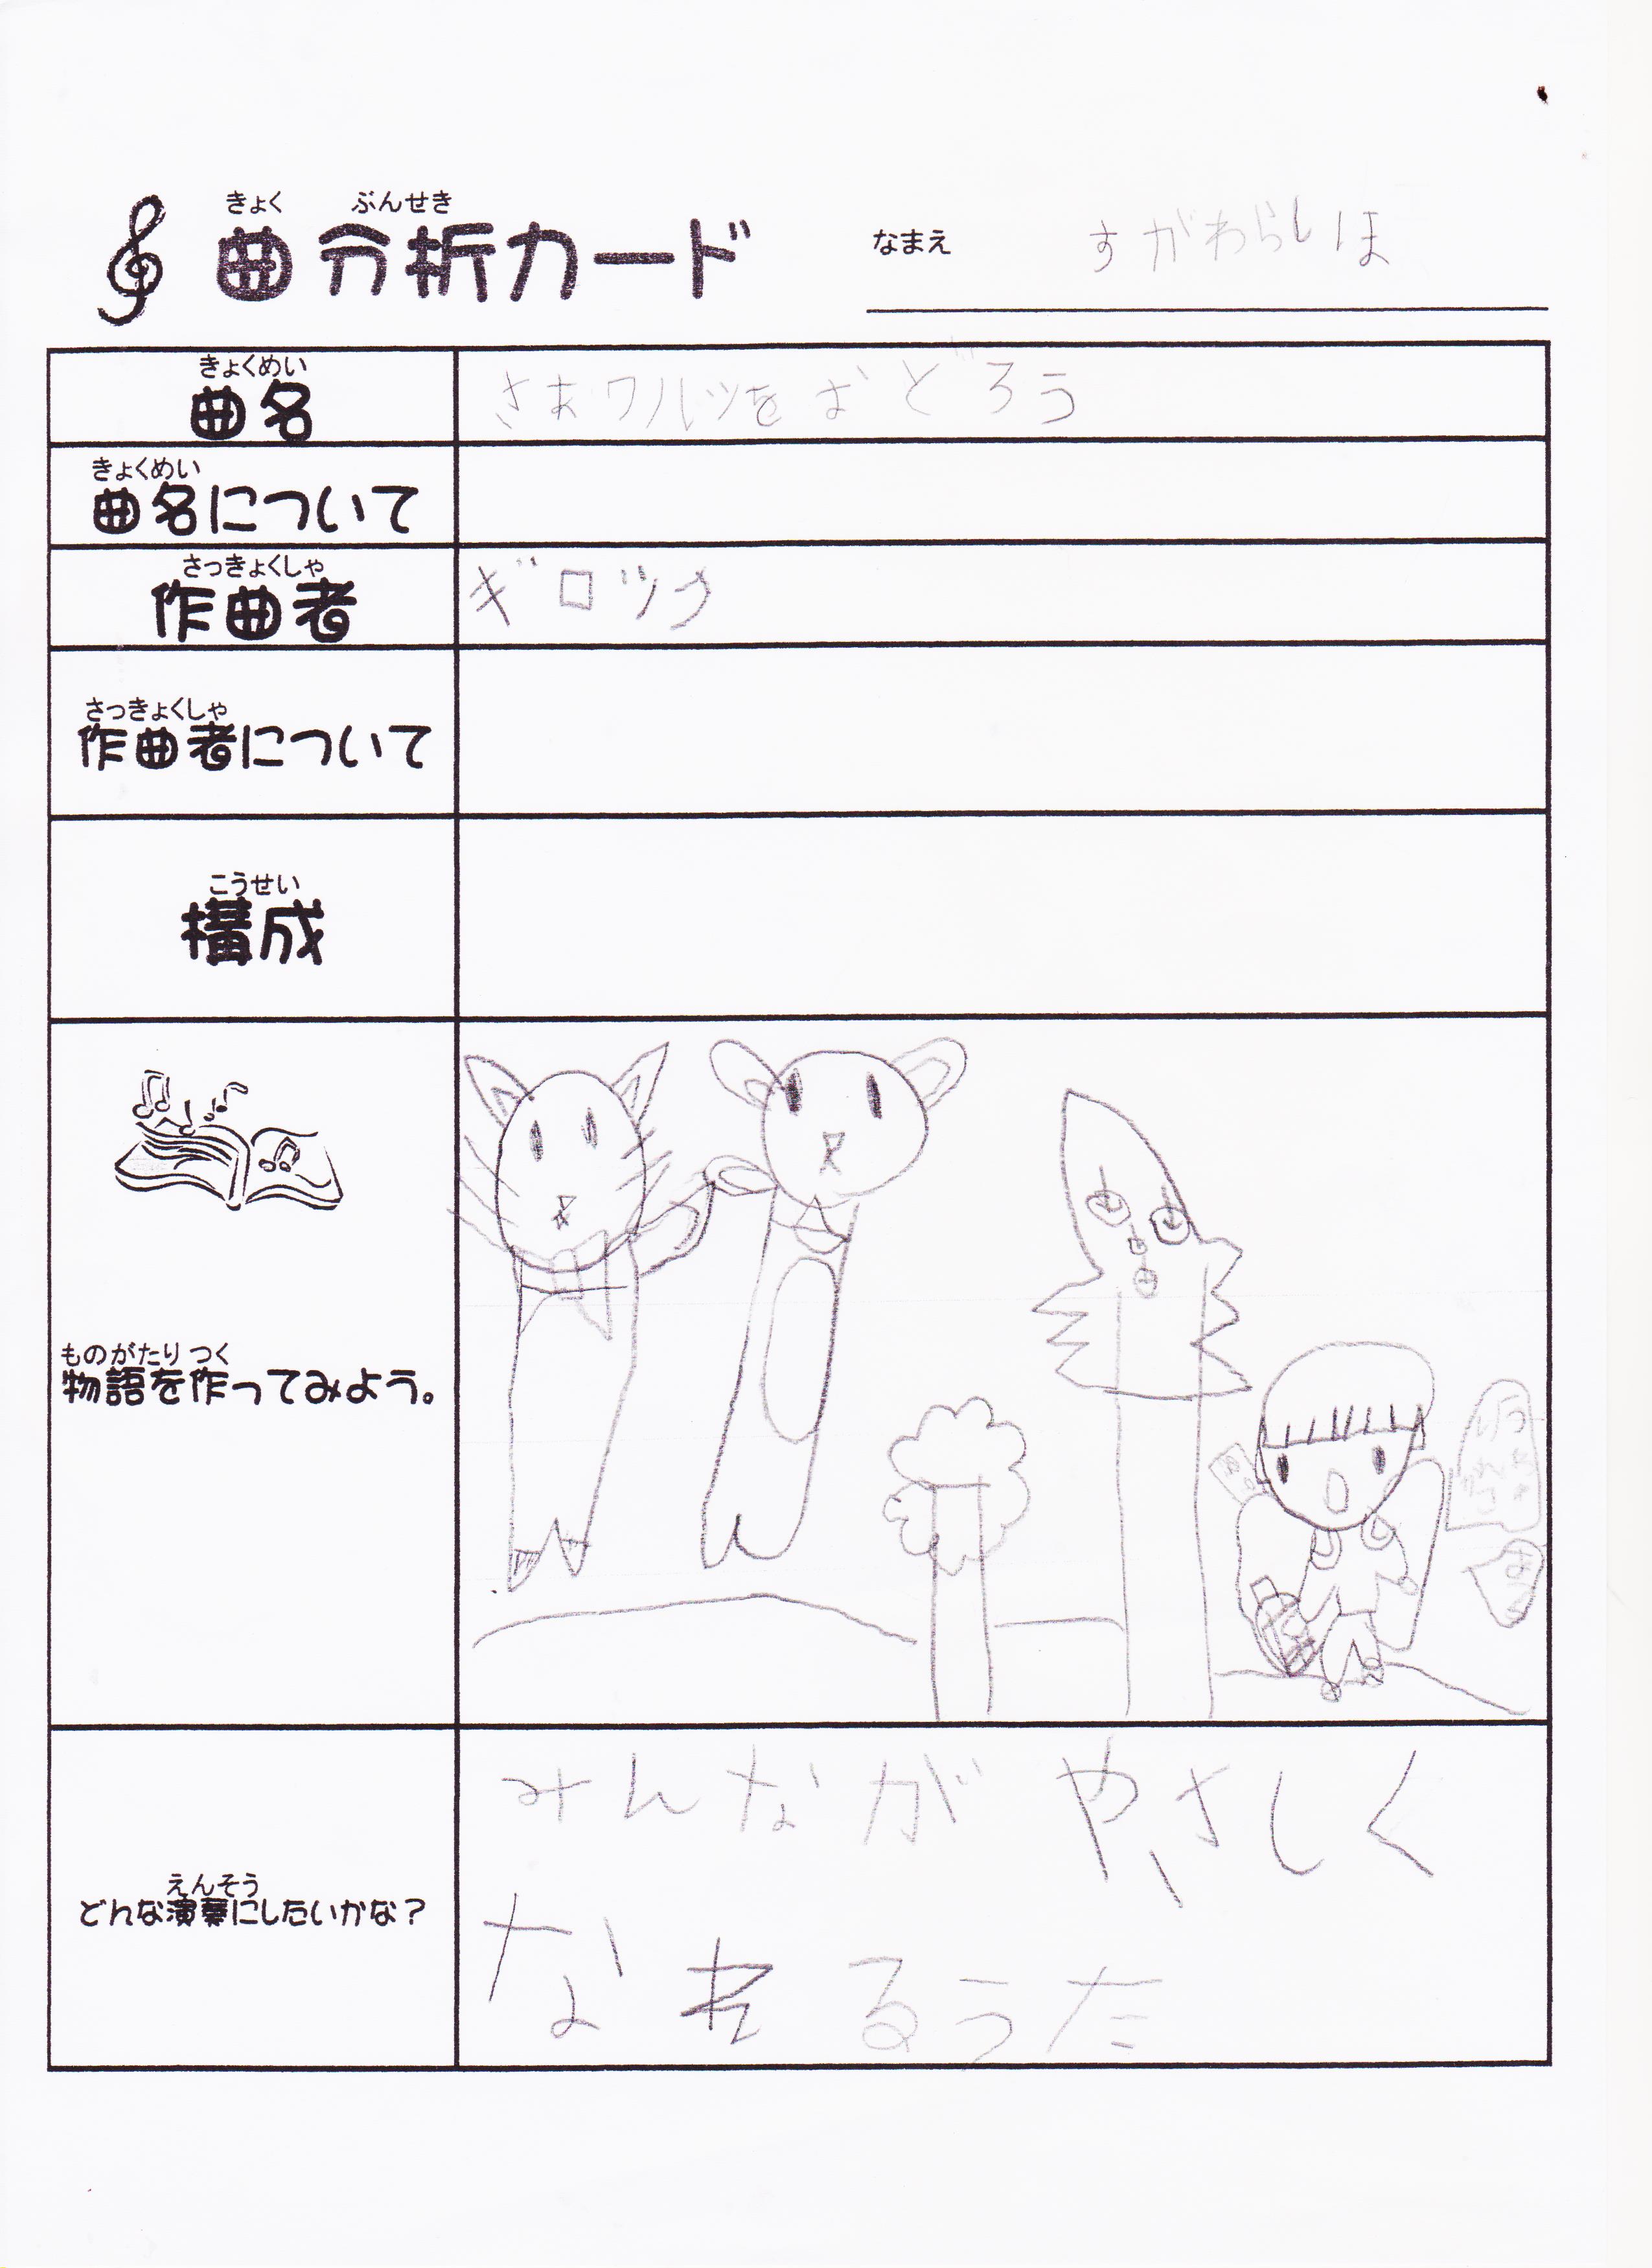 きょく ぶんせき
曲分析カード
なまえ
すがわらしほ
きょくめい
曲名
さあワルツをおどろう
きょくめい
曲名について
さっきょくしゃ
作曲者
ギロック
さっきょくしゃ
作曲者について
こうせい
構成
ものがたり つく
物語を作ってみよう。
えんそう
どんな演奏にしたいかな?
みんながやさしく
なれるうた